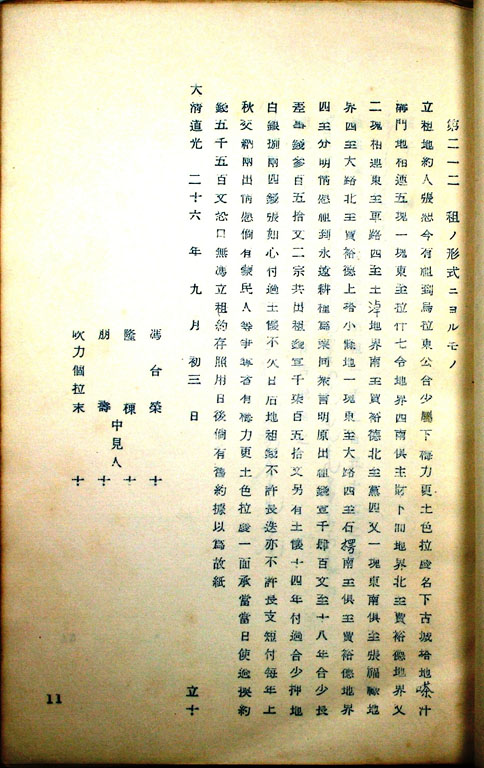 第二ー二 租ノ形式ニヨルモノ
立租地約人張恕今有租到烏拉東公合少屬下梅力更土色拉處名下古城咍地嗏汁
門地相連五塊一塊東至拉什七令地界西南俱至財下間地界北至賈裕德地界又
二塊相連東至車路西至土地界南至賈裕德北至黨四又一塊東南俱至張福祿地
界西至大路北至賈裕德上咍小地一塊東至大路西至石楞南至俱至賈裕德地界
四至分明情愿租到永遠耕種為業同衆言明原出租錢壹千肆百文至十八年合少長
錢參百五拾文二宗共出租錢壹千柒百五拾文另有土懷十四年付過合少押地
白銀捌兩四錢張如心付過土懷不欠日后地租錢不許長迭亦不許長支短付每年上
秋交納兩出情愿倘有蒙民人等爭奪者有梅力更土色拉處一面承當當日使過換約
錢五千五百文恐口無馮立租約存照用日後倘有舊約據以為故紙
大清道光 二十六 年 九 月 初三 日 立十
馮台榮 十
隆 棟 十
中見人
朋 壽 十
吹力個拉末 十
11